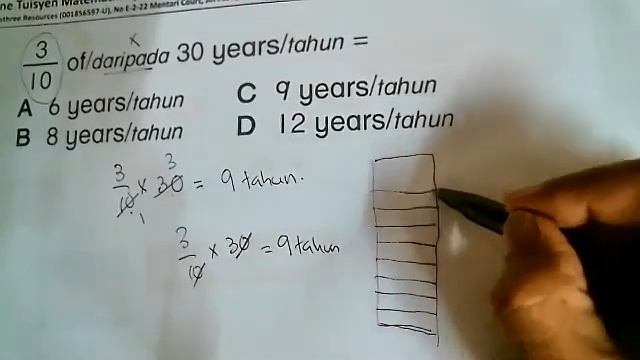 ne Tuisyen Matema
three Resources (001856597-U), No E-2-22 Mentari Court,
×
3/10 of/daripada 30 years/tahun =
A 6 years/tahun
C 9 years/tahun
B 8 years/tahun
D 12 years/tahun
3
3/10 × 30 = 9 tahun.
1
3/10 × 30 = 9 tahun